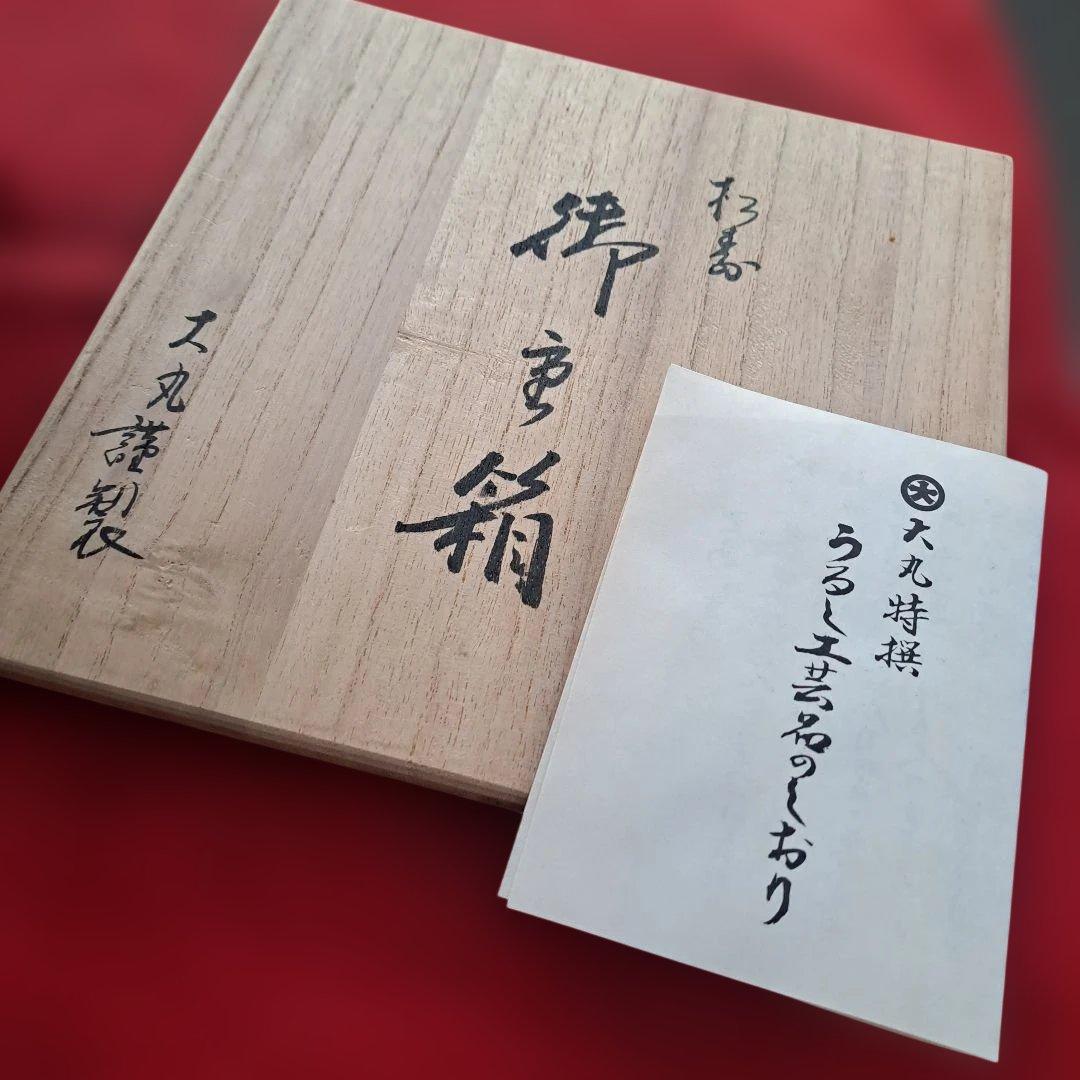 松寿
御重箱
大丸謹製
大 大丸特撰
うるし工芸品のしおり